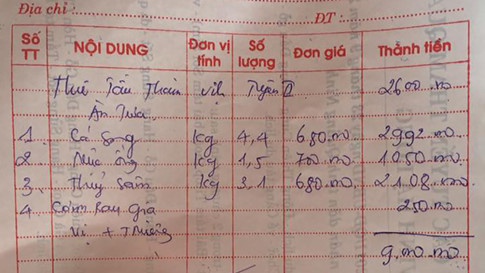 Địa chỉ : ĐT :
Số TT NỘI DUNG Đơn vị tính Số lượng Đơn giá Thành tiền
Thuê Tàu Tham Vịnh Tuyến II 2600.000
Ăn Trưa
1 Cá Song kg 4,4 680.000 2992.000
2 Mực ống kg 1,5 700.000 1050.000
3 Thuỷ Sâm kg 3,1 680.000 2108.000
4 Cơm Rau Gia 250.000
Vị +
9.000.000